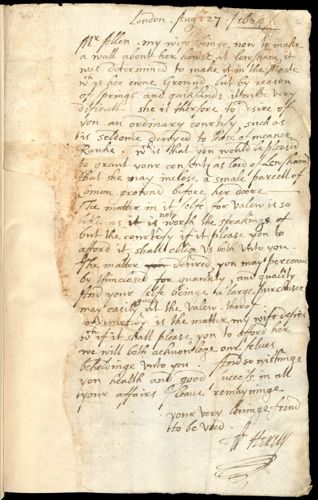 London Aug 27 1604
Mr Allen. my wife being now to make
a wall about her house at Lewsham, it
was determined to make it in the Moate
wch is her owne ground, but by reason
of springs and quicksands it wilbe very
difficult. she is therfore to desire of
you an ordinary courtesy, such as
is seldome denyed to those of meaner
Ranke. wch is that you would be pleased
to graunt your consent as lord of Lewsham
that she may inclose a smale parcell of
comon ground before her doore
The matter in it selfe for valew is so
litle as it is not worth the speakinge of
but the courtesy if it please you to
afford it, shall oblige us both unto you.
The matter desired you may perceave
by thinclosed for quantity, and quality
And your selfe beinge a large purchaser
may easily at the valew therof
is the matter my wife desires
wch if it shall please you to afford her
we will both acknowledge our selves
beholdinge unto you. And so wishinge
you health and good successe in all
your affaires I leave remayninge
your very lovinge frend
to be used